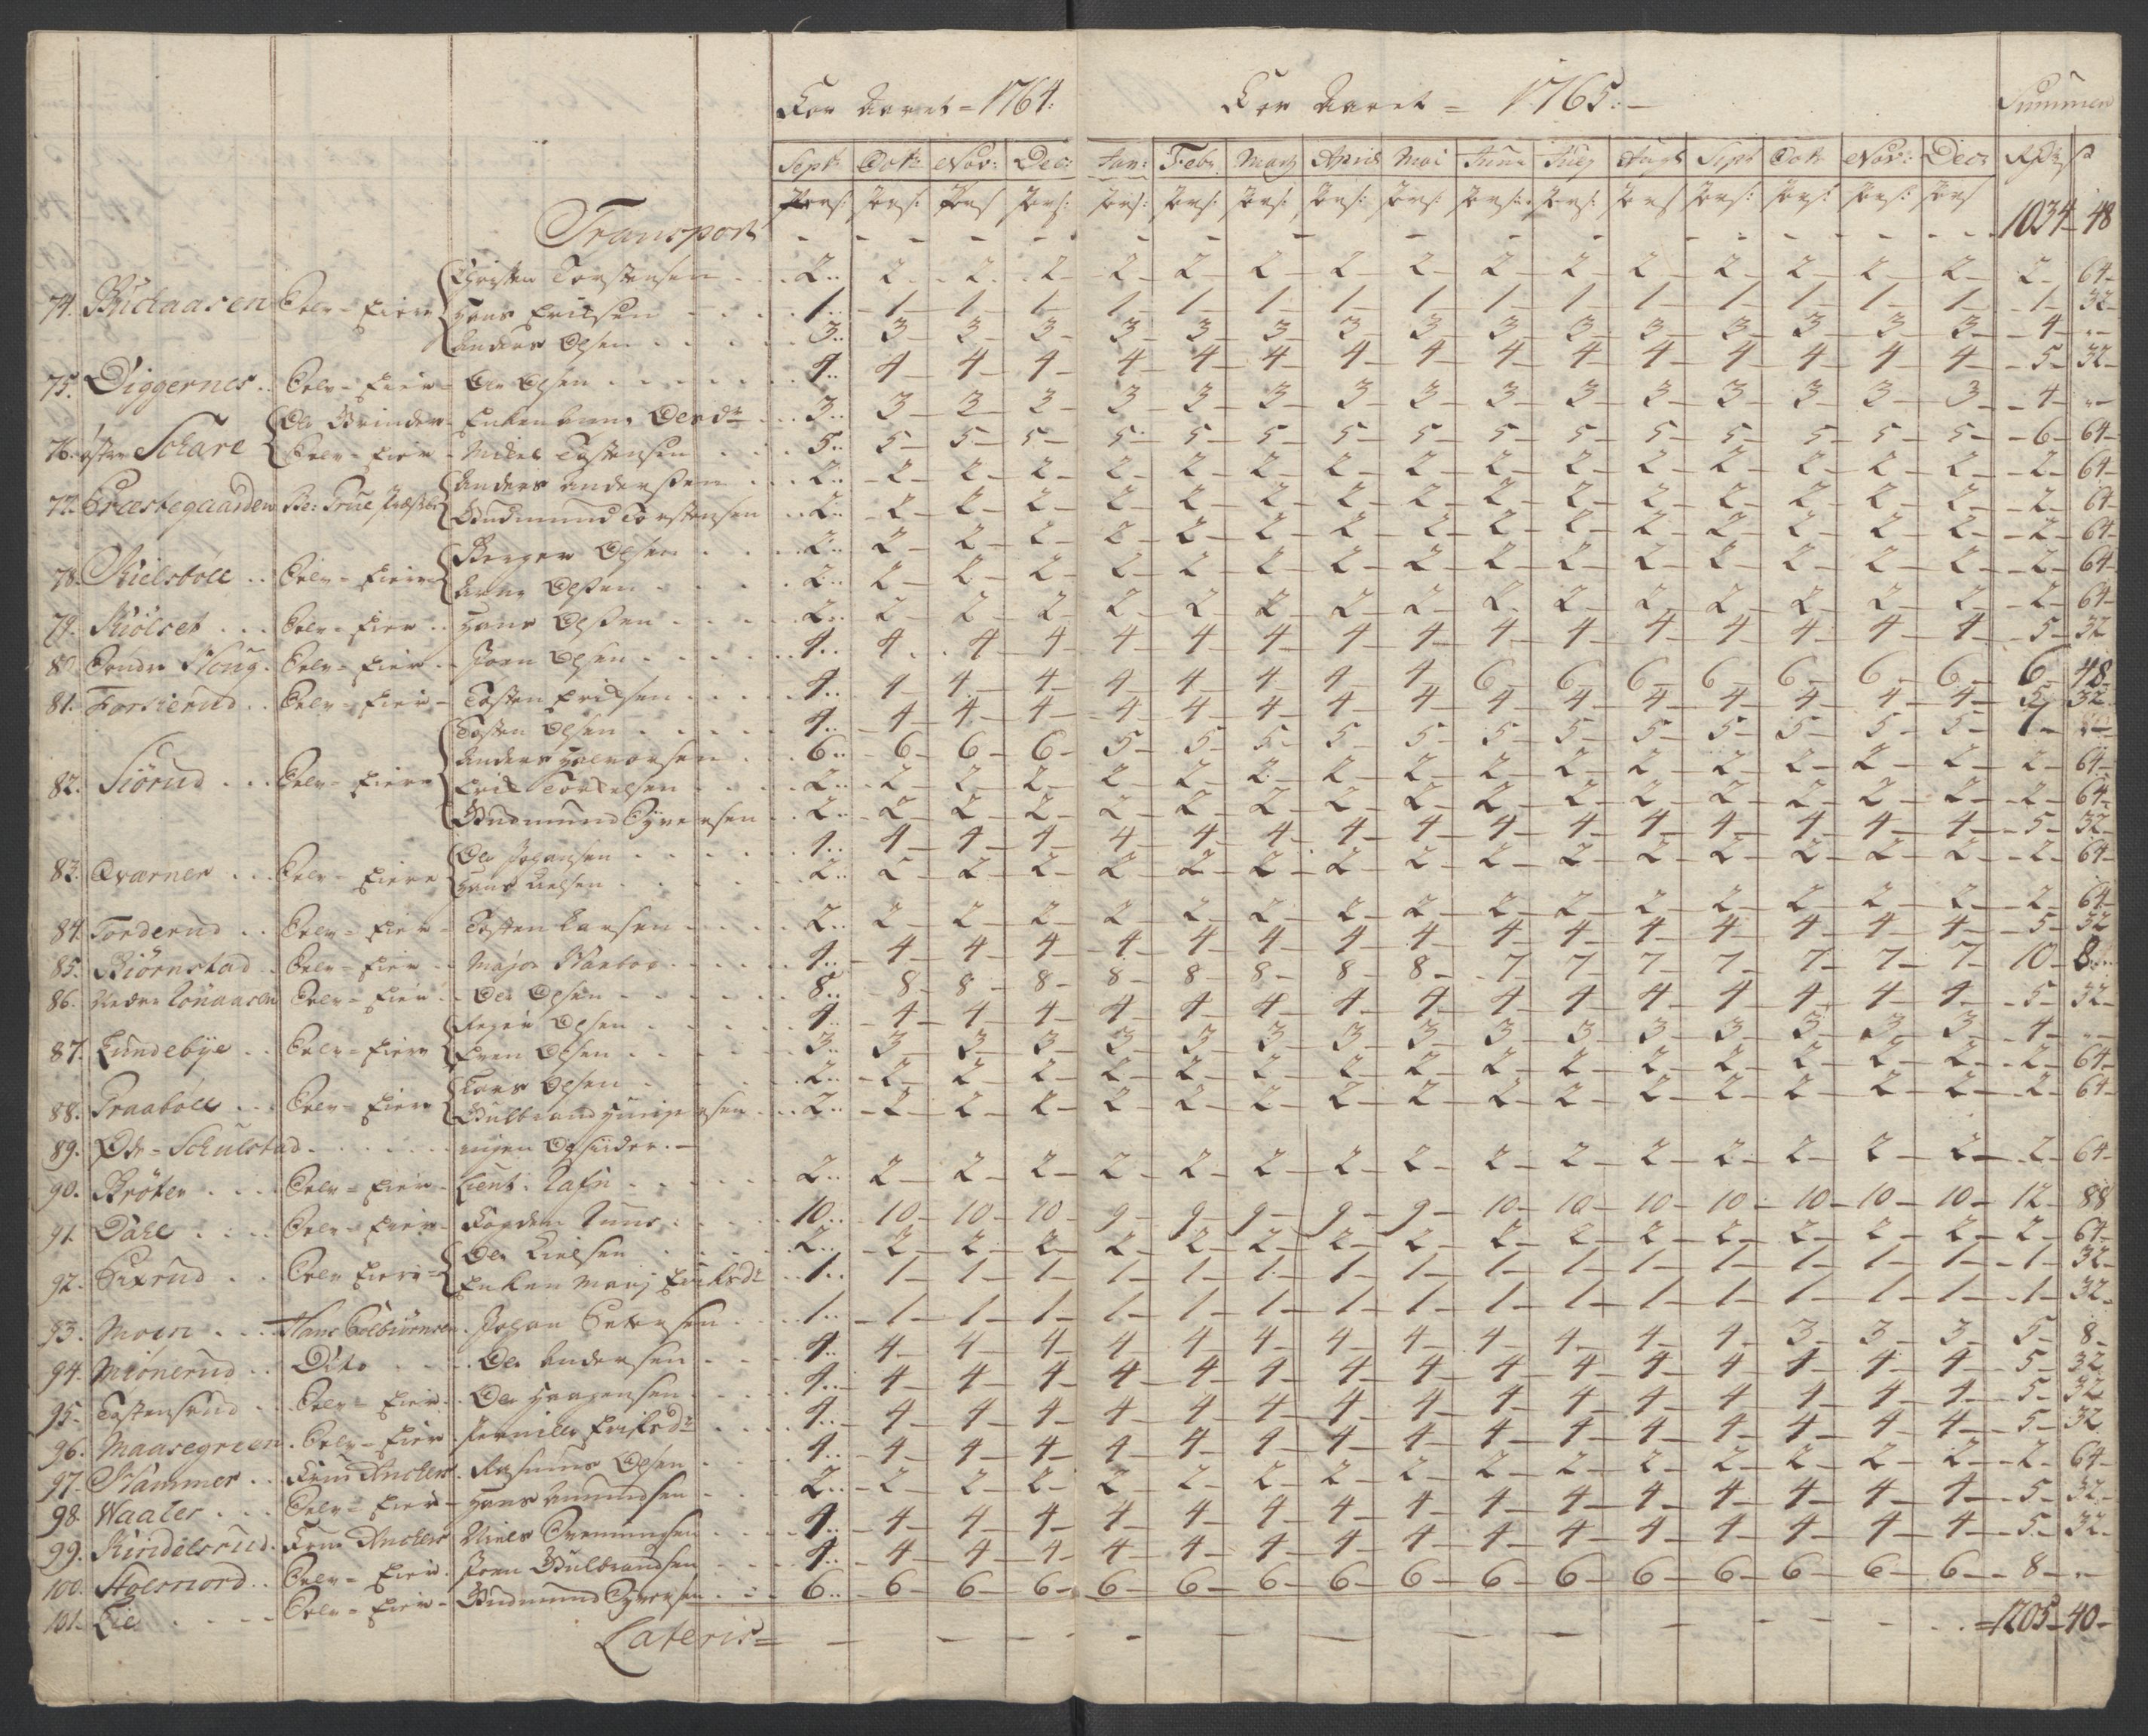 For Aaret = 1764: For Aaret = 1765:- Summen
Sept: Octr Nov: Dec: Jan: Febr Marty April Mai Juni July Augt Sept Octr Nov: Dec: Rdr s
Pers: Pers: Pers Pers: Pers: Pers: Pers: Pers: Pers: Pers: Pers: Pers Pers: Pers: Pers: Pers
Transport - - - - - - - - - - - - 1034 - 48
Christen Torstensen 2 2 2 2 2 2 2 2 2 2 2 2 2 2 2 2 2 64
74. Selv = Eiere Hans Erichsen 1 1 1 1 1 1 1 1 1 1 1 1 1 1 1 1 1 32
Anders Olsen 3 3 3 3 3 3 3 3 3 3 3 3 3 3 3 3 4 "
75. Diggernes Selv = Eier Ole Olsen 4 4 4 4 4 4 4 4 4 4 4 4 4 4 4 4 5 32
Ole Grinder Enken Olesdr 3 3 3 3 3 3 3 3 3 3 3 3 3 3 3 3 4 "
76. Østre Schare Selv = Eier Nichel Tostensen 5 5 5 5 5 5 5 5 5 5 5 5 5 5 5 5 6 64
Anders Anderssen 2 2 2 2 2 2 2 2 2 2 2 2 2 2 2 2 2 64
77. Præstegaarden Gudmund Torstensen 2 2 2 2 2 2 2 2 2 2 2 2 2 2 2 2 2 64
Borger Olsen 2 2 2 2 2 2 2 2 2 2 2 2 2 2 2 2 2 64
78. Kielsböll Selv = Eiere Arne Olsen 2 2 2 2 2 2 2 2 2 2 2 2 2 2 2 2 2 64
79. Kiölset Selv = Eier Hans Olssen 2 2 2 2 2 2 2 2 2 2 2 2 2 2 2 2 2 64
80. Søndre Houg Selv = Eier Joen Olsen 4 4 4 4 4 4 4 4 4 4 4 4 4 4 4 4 5 32
81. Forkierud Selv = Eier Tosten Erichsen 4 4 4 4 4 4 4 4 4 6 6 6 6 6 6 6 6 48
Tosten Olsen 4 4 4 4 4 4 4 4 4 4 4 4 4 4 4 4 5 32
Anders Halvorsen 6 6 6 6 5 5 5 5 5 5 5 5 5 5 5 5 7 "
82. Siörud Selv = Eiere Erich Torkelsen 2 2 2 2 2 2 2 2 2 2 2 2 2 2 2 2 2 64
Gudmund Syversen 2 2 2 2 2 2 2 2 2 2 2 2 2 2 2 2 2 64
Ole Johansen 4 4 4 4 4 4 4 4 4 4 4 4 4 4 4 4 5 32
83. Qværner Selv = Eiere Hans Nielsen 2 2 2 2 2 2 2 2 2 2 2 2 2 2 2 2 2 64
84. Torderud Selv = Eier Tosten Larsen 2 2 2 2 2 2 2 2 2 2 2 2 2 2 2 2 2 64
85. Biörnstad Selv = Eier Major 4 4 4 4 4 4 4 4 4 4 4 4 4 4 4 4 5 32
86. Nedre Lönaasen Selv = Eier Ole Olsen 8 8 8 8 8 8 8 8 8 7 7 7 7 7 7 7 10 8
Olsen 4 4 4 4 4 4 4 4 4 4 4 4 4 4 4 4 5 32
87. Lundebye Selv = Eiere Even Olsen 3 3 3 3 3 3 3 3 3 3 3 3 3 3 3 3 4 "
Lars Olsen 2 2 2 2 2 2 2 2 2 2 2 2 2 2 2 2 2 64
88. Praaböll Selv = Eiere Gulbrand 2 2 2 2 2 2 2 2 2 2 2 2 2 2 2 2 2 64
89. Øde = Schulstad ingen Opsidder.-
90. Bröten Selv = Eier Lieut. Rafn 2 2 2 2 2 2 2 2 2 2 2 2 2 2 2 2 2 64
91. Dahl Selv = Eier Fogden 10 10 10 10 9 9 9 9 9 10 10 10 10 10 10 10 12 88
Ole Nielsen 2 2 2 2 2 2 2 2 2 2 2 2 2 2 2 2 2 64
92. Selv Eiere Enken Mari Eriksdr 1 1 1 1 1 1 1 1 1 1 1 1 1 1 1 1 1 32
93. Moen Hans Colbiörnsen Johan Petersen 1 1 1 1 1 1 1 1 1 1 1 1 1 1 1 1 1 32
94. Miönerud Dito Ole Andersen 4 4 4 4 4 4 4 4 4 4 4 4 4 3 3 3 5 8
95. Tostensrud Selv = Eier Ole Haagensen 4 4 4 4 4 4 4 4 4 4 4 4 4 4 4 4 5 32
96. Maasegreen Selv = Eier Pernille Eriksdr 4 4 4 4 4 4 4 4 4 4 4 4 4 4 4 4 5 32
97. Hammer Frue Anchers Rasmus Olsen 4 4 4 4 4 4 4 4 4 4 4 4 4 4 4 4 5 32
98. Waaler Selv = Eier Hans Amundsen 2 2 2 2 2 2 2 2 2 2 2 2 2 2 2 2 2 64
99. Kindelsrud Frue Anchers Niels Svenningsen 4 4 4 4 4 4 4 4 4 4 4 4 4 4 4 4 5 32
100. Holsnord Selv = Eier Joen Gulbrandsen 4 4 4 4 4 4 4 4 4 4 4 4 4 4 4 4 5 32
101. Lie Selv = Eier Gudmund Syversen 6 6 6 6 6 6 6 6 6 6 6 6 6 6 6 6 8 "
Lateris = 1205 - 40 -